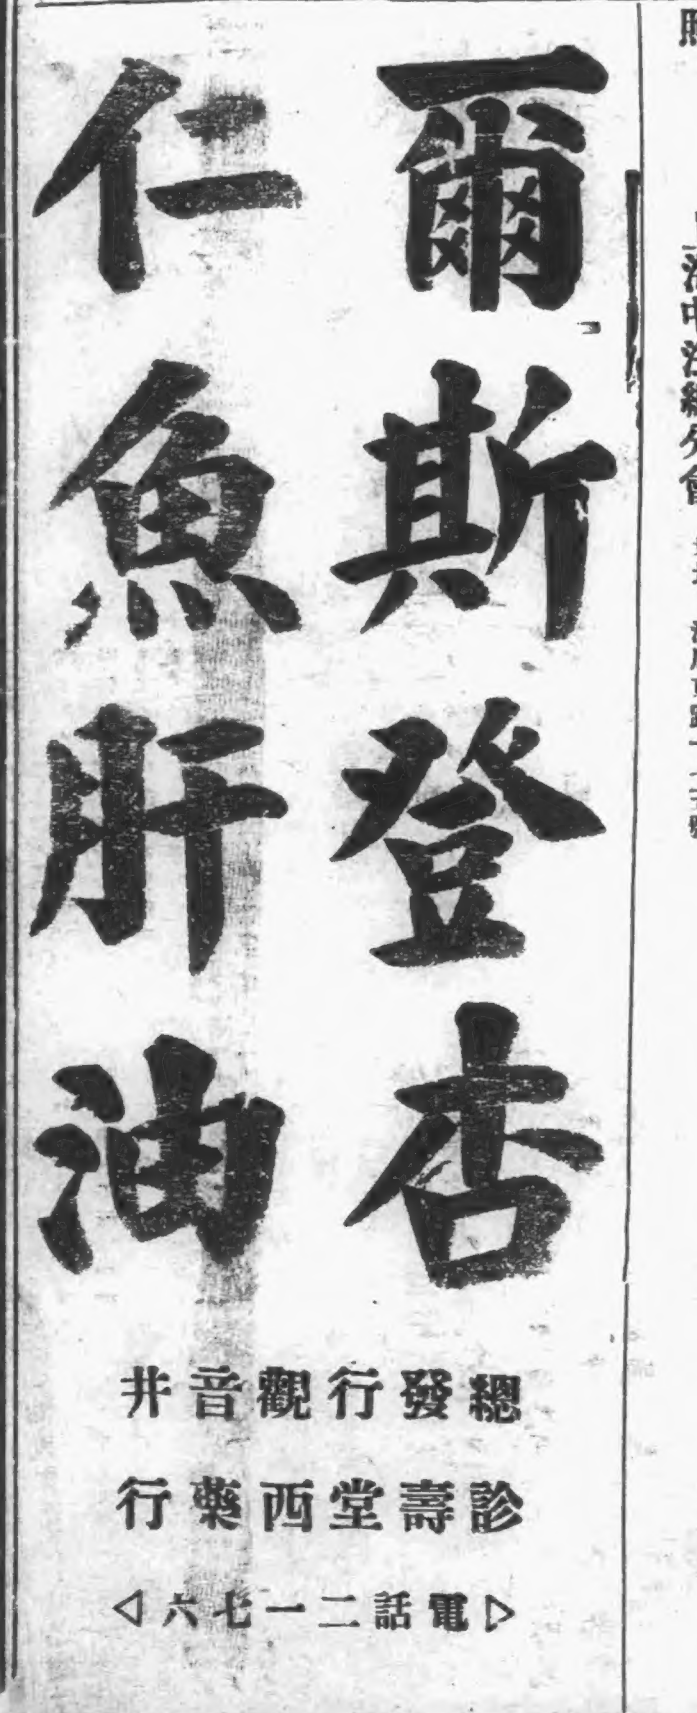 爾斯登杏
仁魚肝油
總發行觀音井
診壽堂西藥行
電話二一七六